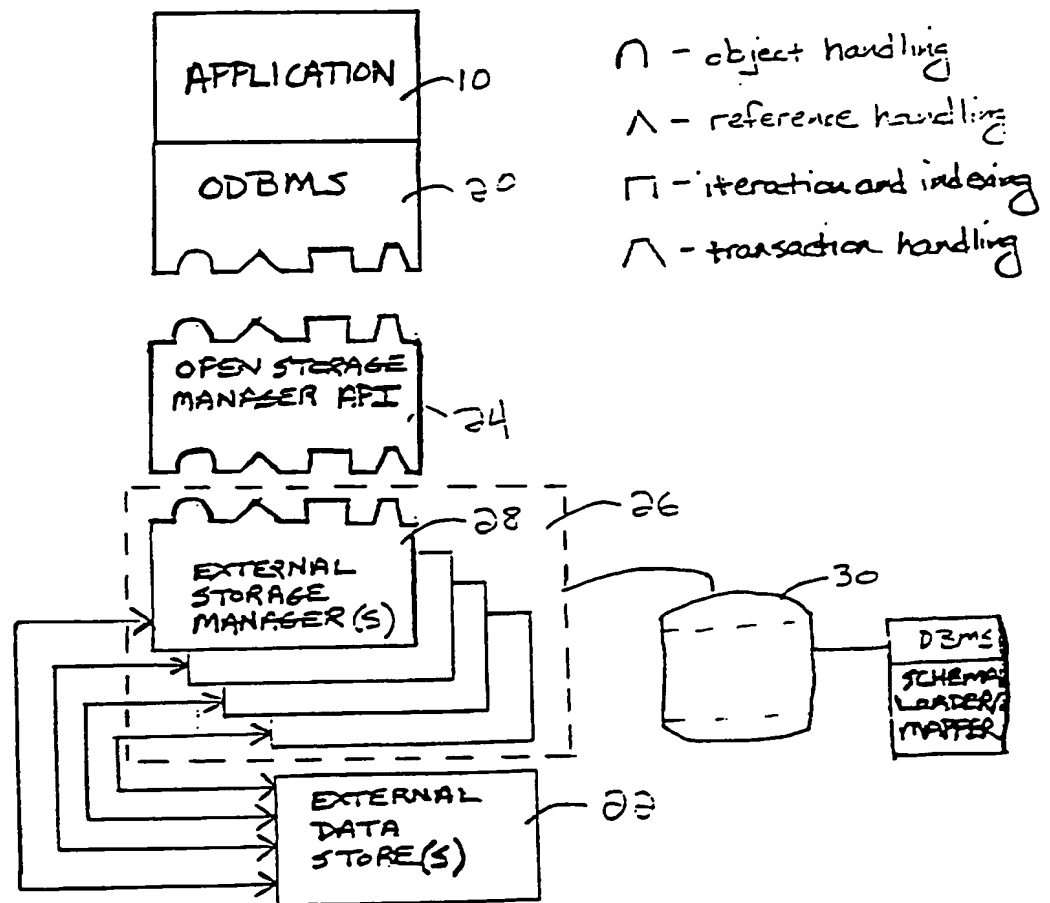 APPLICATION
10
ODBMS
20
∩ - object handling
∧ - reference handling
⊓ - iteration and indexing
⏢ - transaction handling
OPEN STORAGE
MANAGER API
24
28
26
EXTERNAL
STORAGE
MANAGER(S)
30
DBMS
SCHEMA
LOADER/
MAPPER
EXTERNAL
DATA
STORE(S)
22